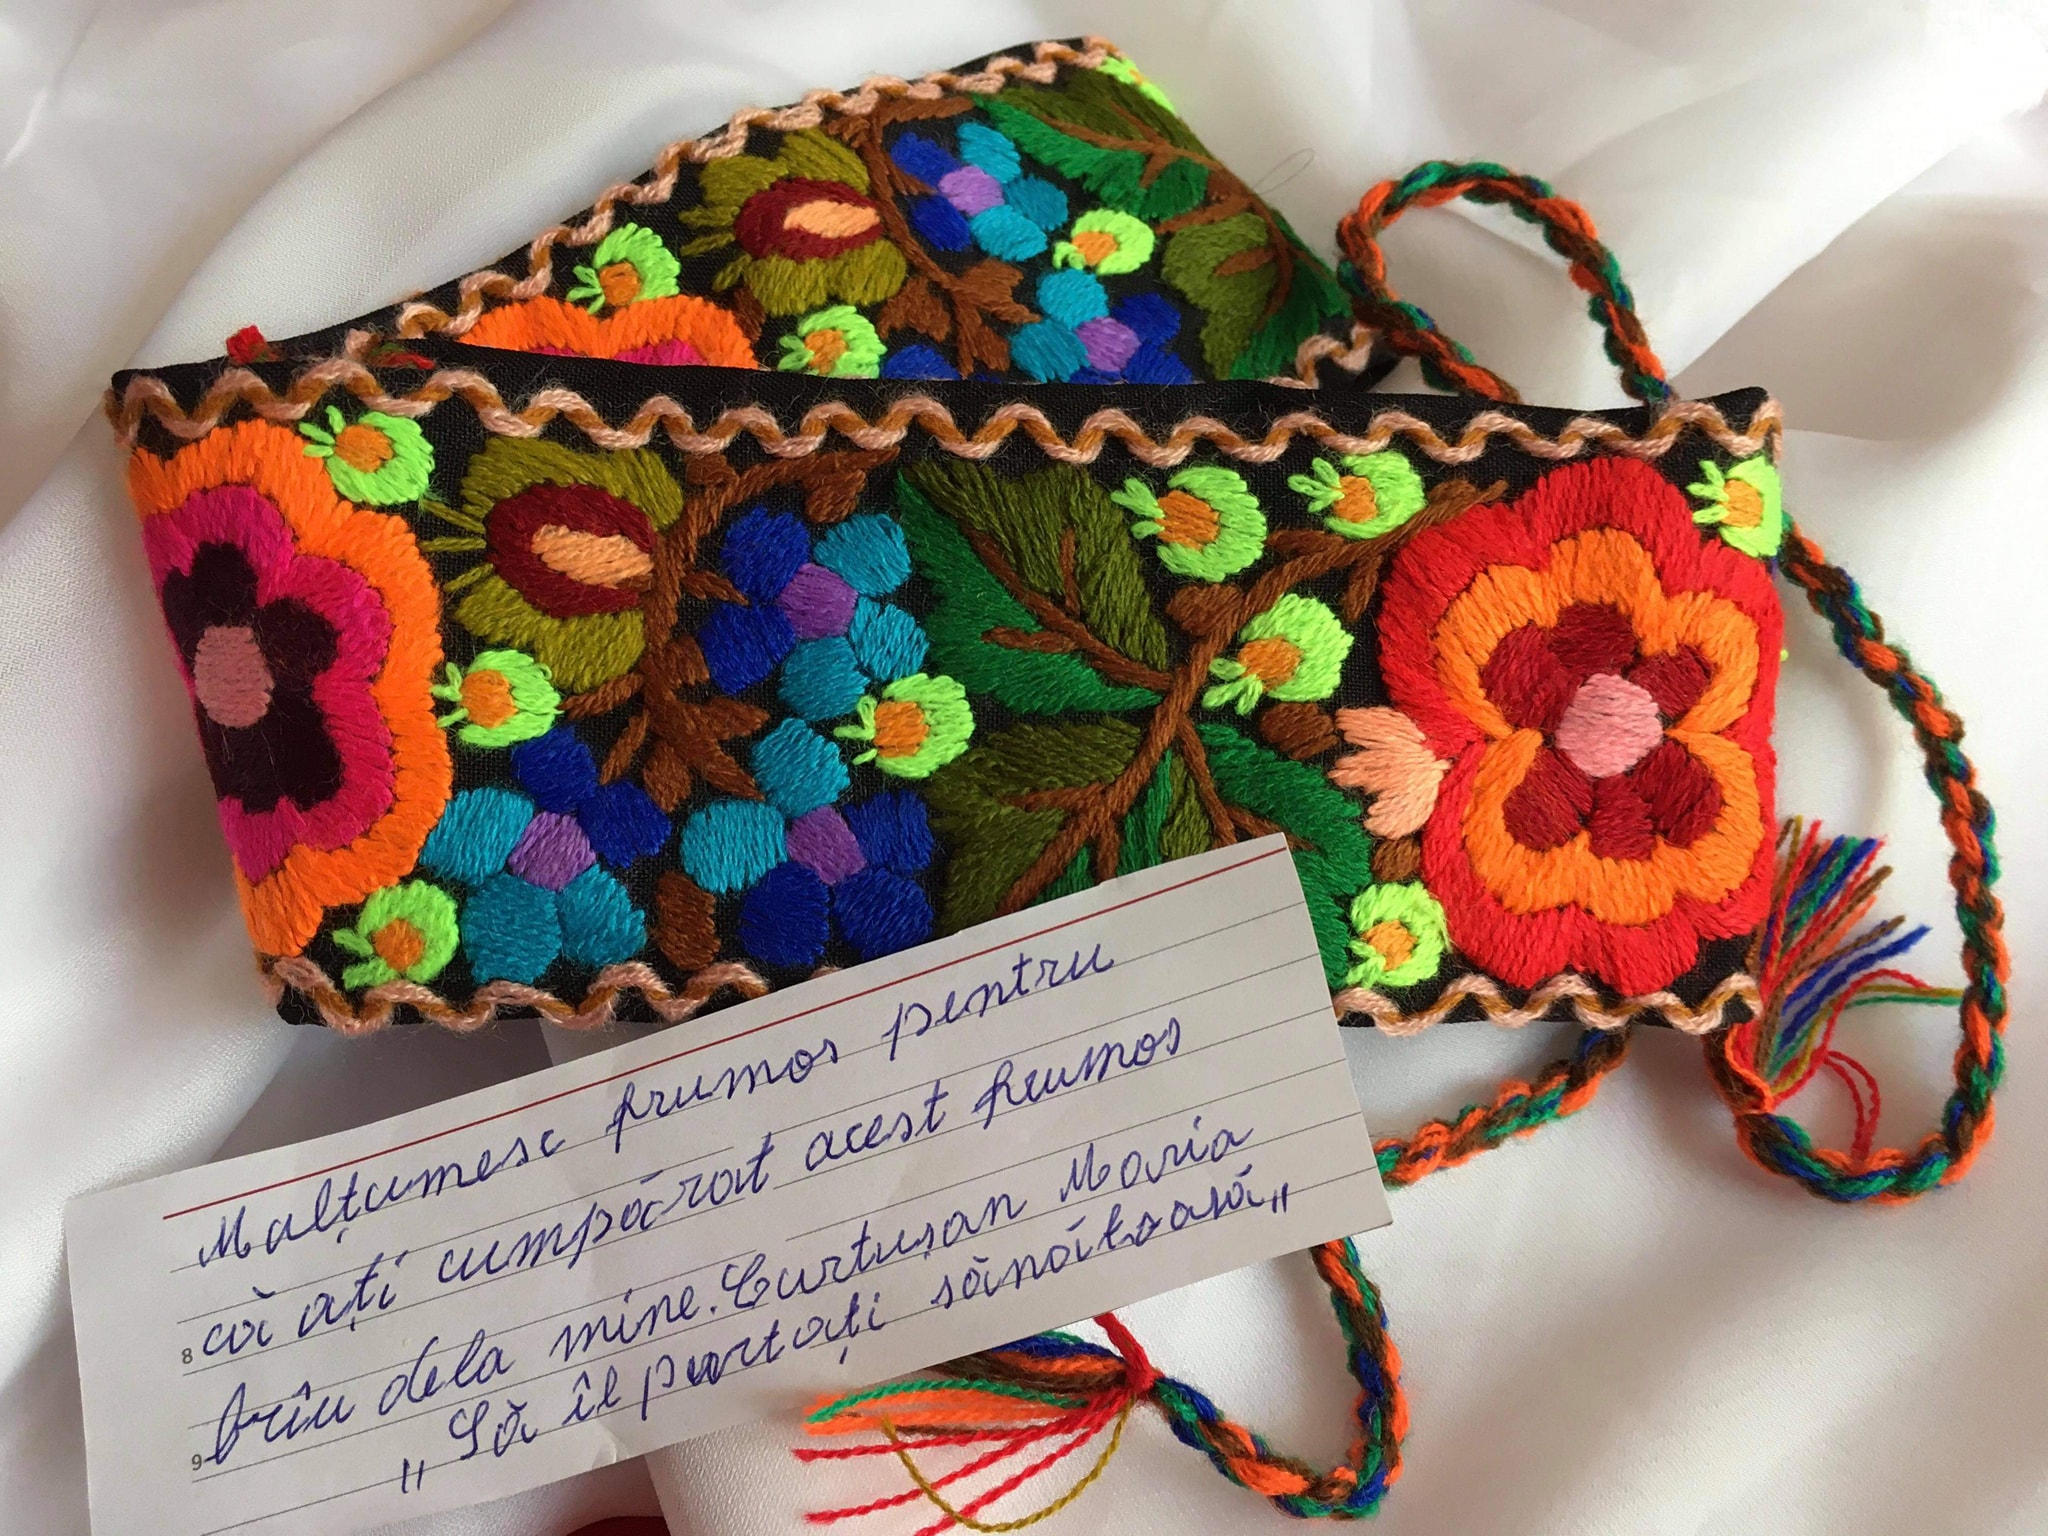 Malțumesc frumos pentru
că ați cumpărat acest frumos
8
brîu dela mine. Curtușan Maria
9
„ Să îl purtați sănoătoasă „